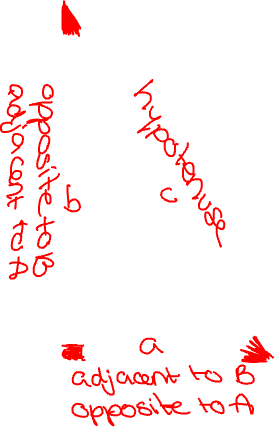 opposite to B
adjacent to A
b
hypotenuse
c
a
adjacent to B
opposite to A